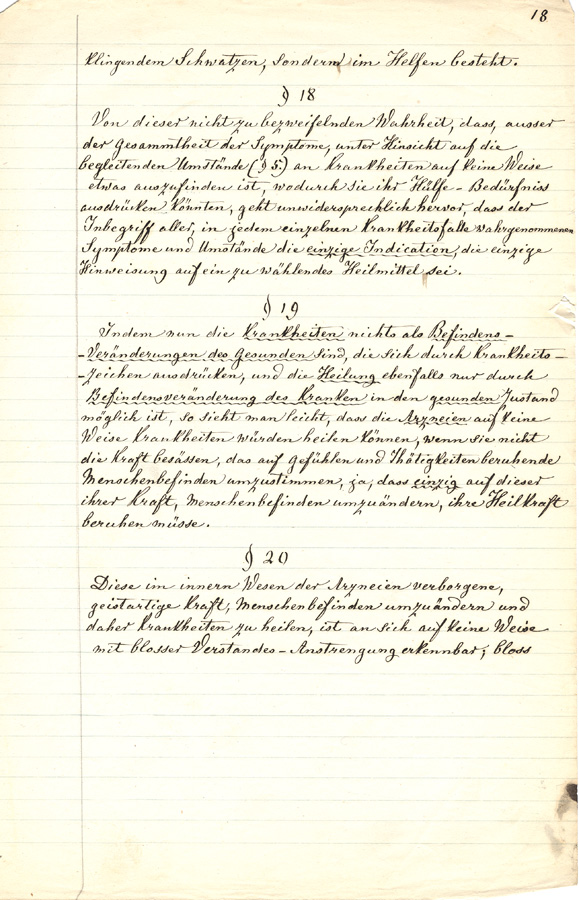 18
klingendem Schwatzen, sondern im Helfen besteht.
§ 18
Von dieser nicht zu bezweifelnden Wahrheit, dass, ausser
der Gesammtheit der Symptome, unter Hinsicht auf die
begleitenden Umstände (§ 5) an Krankheiten auf keine Weise
etwas auszufinden ist, wodurch sie ihr Hülfe-Bedürfniss
ausdrücken könnten, geht unwidersprechlich hervor, dass der
Inbegriff aller, in jedem einzelnen Krankheitsfalle wahrgenommenen
Symptome und Umstände die einzige Indication, die einzige
Hinweisung auf ein zu wählendes Heilmittel sei.
§ 19
Indem nun die Krankheiten nichts als Befindens-
-Veränderungen des Gesunden sind, die sich durch Krankheits-
-zeichen ausdrücken, und die Heilung ebenfalls nur durch
Befindensveränderung des Kranken in den gesunden Zustand
möglich ist, so sieht man leicht, dass die Arzneien auf keine
Weise Krankheiten würden heilen können, wenn sie nicht
die Kraft besässen, das auf Gefühlen und Thätigkeiten beruhende
Menschenbefinden umzustimmen, ja, dass einzig auf dieser
ihrer Kraft, Menschenbefinden umzuändern, ihre Heilkraft
beruhen müsse.
§ 20
Diese im innern Wesen der Arzneien verborgene,
geistartige Kraft, Menschenbefinden umzuändern und
daher Krankheiten zu heilen, ist an sich auf keine Weise
mit blosser Verstandes-Anstrengung erkennbar; bloss